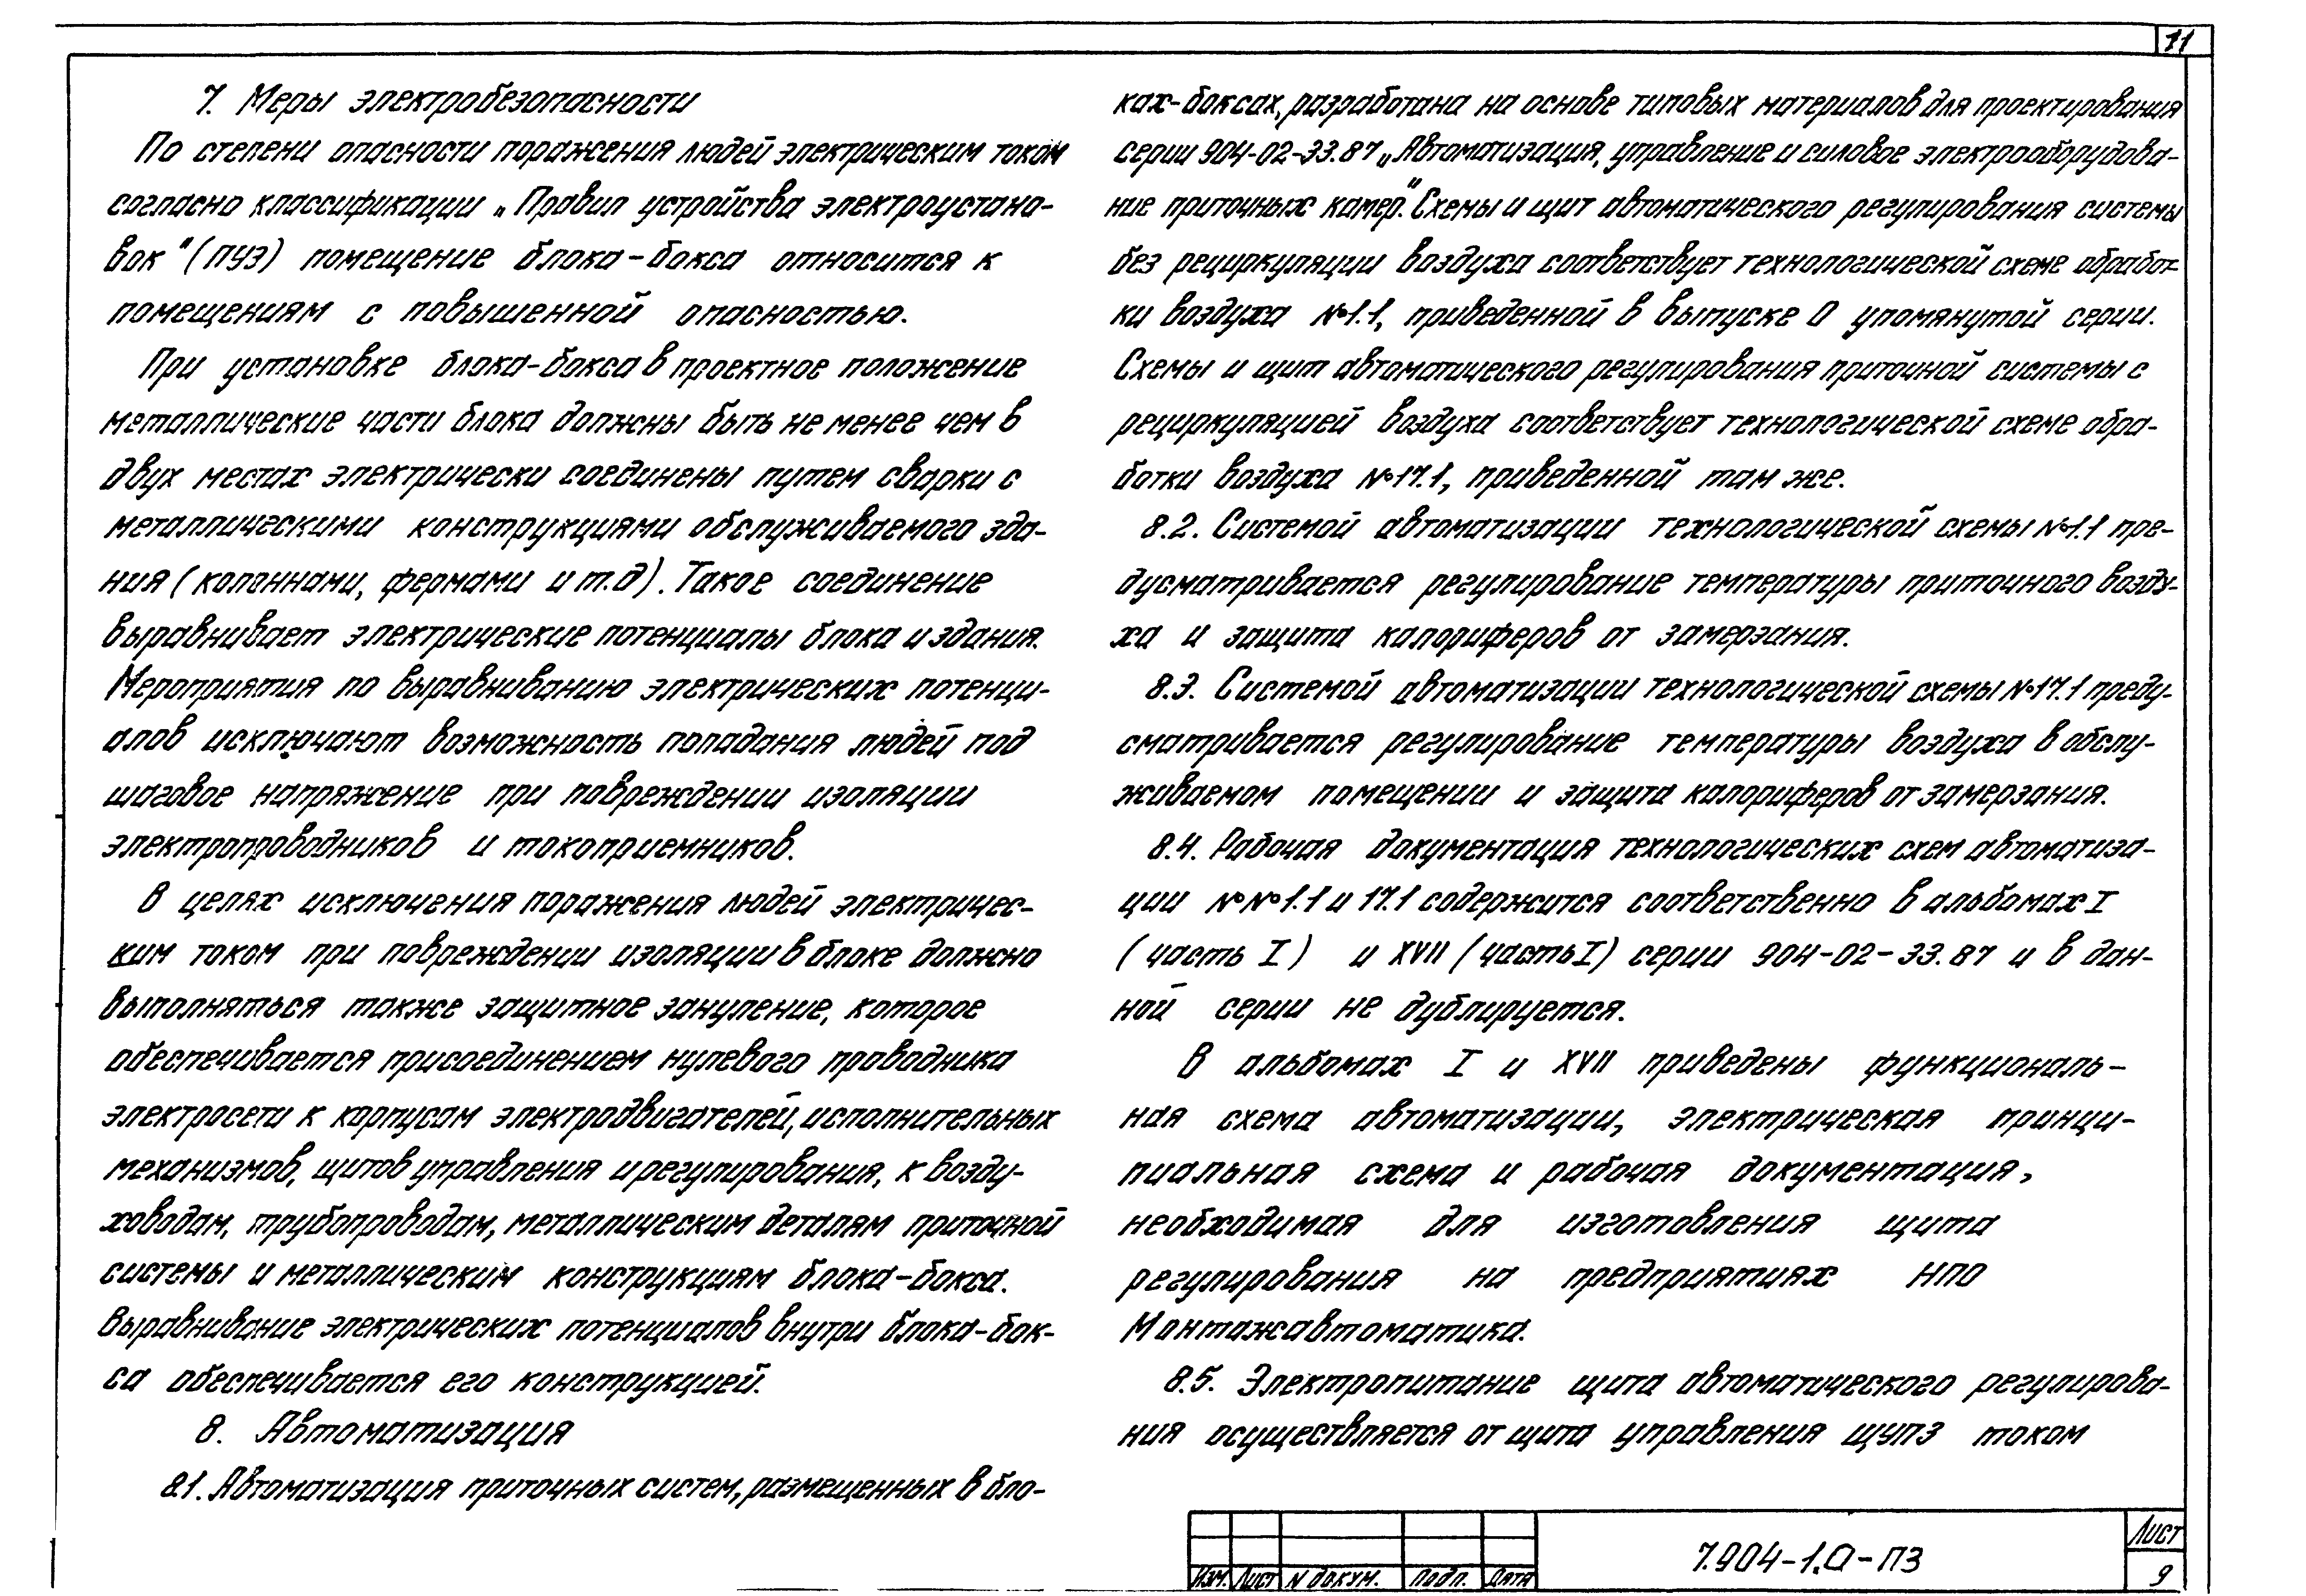 11
7. Меры электробезопасности
По степени опасности поражения людей электрическим током
согласно классификации „Правил устройства электроустано-
вок" (ПУЭ) помещение блока-бокса относится к
помещениям с повышенной опасностью.
При установке блока-бокса в проектное положение
металлические части блока должны быть не менее чем в
двух местах электрически соединены путем сварки с
металлическими конструкциями обслуживаемого зда-
ния (колоннами, фермами и т.д). Такое соединение
выравнивает электрические потенциалы блока и здания.
Мероприятия по выравниванию электрических потенци-
алов исключают возможность попадания людей под
шаговое напряжение при повреждении изоляции
электропроводников и токоприемников.
В целях исключения поражения людей электричес-
ким током при повреждении изоляции в блоке должно
выполняться также защитное зануление, которое
обеспечивается присоединением нулевого проводника
электросети к корпусам электродвигателей, исполнительных
механизмов, щитов управления и регулирования, к возду-
ховодам, трубопроводам, металлическим деталям приточной
системы и металлическим конструкциям блока-бокса.
Выравнивание электрических потенциалов внутри блока-бок-
са обеспечивается его конструкцией.
8. Автоматизация
8.1. Автоматизация приточных систем, размещенных в бло-
ках-боксах, разработана на основе типовых материалов для проектирования
серии 904-02-33.87 „Автоматизация, управление и силовое электрооборудова-
ние приточных камер". Схемы и щит автоматического регулирования системы
без рециркуляции воздуха соответствует технологической схеме обработ-
ки воздуха №1.1, приведенной в выпуске 0 упомянутой серии.
Схемы и щит автоматического регулирования приточной системы с
рециркуляцией воздуха соответствует технологической схеме обра-
ботки воздуха №17.1, приведенной там же.
8.2. Системой автоматизации технологической схемы №1.1 пре-
дусматривается регулирование температуры приточного возду-
ха и защита калориферов от замерзания.
8.3. Системой автоматизации технологической схемы №17.1 преду-
сматривается регулирование температуры воздуха в обслу-
живаемом помещении и защита калориферов от замерзания.
8.4. Рабочая документация технологических схем автоматиза-
ции №№1.1 и 17.1 содержится соответственно в альбомах I
(часть I) и XVII (часть I) серии 904-02-33.87 и в дан-
ной серии не дублируется.
В альбомах I и XVII приведены функциональ-
ная схема автоматизации, электрическая принци-
пиальная схема и рабочая документация,
необходимая для изготовления щита
регулирования на предприятиях НПО
Монтажавтоматика.
8.5. Электропитание щита автоматического регулирова-
ния осуществляется от щита управления ЩУПЗ током
Изм. Лист N докум. Подп. Дата
7.904-1.0-ПЗ
Лист
9